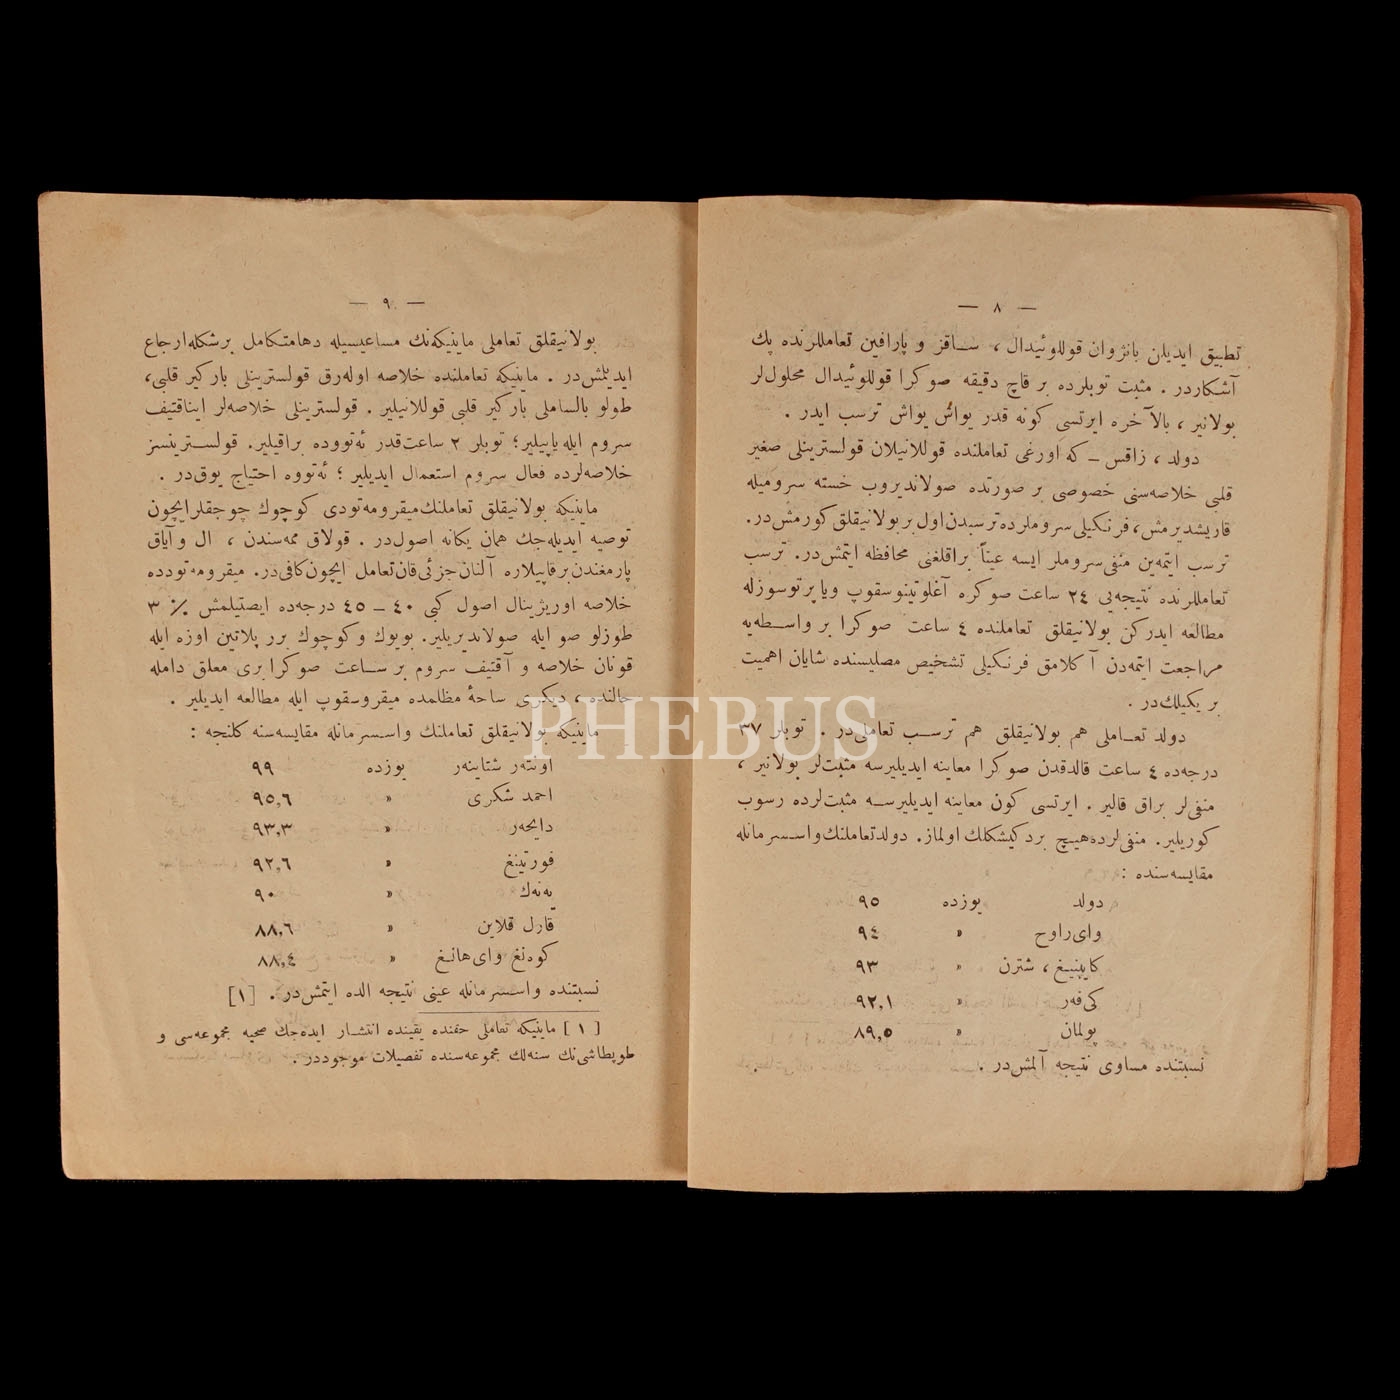 — ٨ —
تطبيق ايديلن بانژوان قوللوئيدال ، ساقز و پارافين تعامللرنده پك
آشكاردر . مثبت توبلرده بر قاچ دقيقه صوكرا قوللوئيدال محلول لر
بولانير ، بالآخره ايرتسى كونه قدر يواش يواش ترسب ايدر .
دولد ، زاقس ـ كه اورغى تعاملنده قوللانيلان قولسترينلى صغير
قلبى خلاصه سنى خصوصى بر صورتده صولانديروب خسته سروميله
قاريشديرمش، فرنكيلى سروملرده ترسبدن اول بر بولانيقلق كورمش در.
ترسب ايتمه ين منفى سروملر ايسه عيناً براقلغنى محافظه ايتمش در. ترسب
تعامللرنده نتيجه يى ٢٤ ساعت صوكره آغلوتينوسقوپ ويا پرتوسوزله
مطالعه ايدركن بولانيقلق تعاملنده ٤ ساعت صوكرا بر واسطه يه
مراجعت ايتمه دن آكلامق فرنكيلى تشخيص مصليسنده شايان اهميت
بر يكيلك در .
دولد تعاملى هم بولانيقلق هم ترسب تعاملى در . توبلر ٣٧
درجه ده ٤ ساعت قالدقدن صوكرا معاينه ايديليرسه مثبت لر بولانير ،
منفى لر براق قالير . ايرتسى كون معاينه ايديليرسه مثبت لرده رسوب
كوريلير. منفى لرده هيچ بر دكيشكلك اولماز. دولد تعاملنك واسسرمانله
مقايسه سنده :
دولد يوزده ٩٥
واى راوح » ٩٤
كاينيغ ، شترن » ٩٣
كى فه ر » ٩٢,١
پولمان » ٨٩,٥
نسبتنده مساوى نتيجه آلمش در .
— ٩ —
بولانيقلق تعاملى ماينيكه نك مساعيسيله دها متكامل بر شكله ارجاع
ايديلمش در . ماينيكه تعاملنده خلاصه اوله رق قولسترينلى باركير قلبى،
طولو بالساملى باركير قلبى قوللانيلير . قولسترينلى خلاصه لر ايناقتيف
سروم ايله ياپيلير؛ توبلر ٢ ساعت قدر ئه تووده براقيلير. قولسترينسز
خلاصه لرده فعال سروم استعمال ايديلير ؛ ئه تووه احتياج يوق در .
ماينيكه بولانيقلق تعاملنك ميقرومه تودى كوچوك چوجقلر ايچون
توصيه ايديله جك همان يكانه اصول در . قولاق ممه سندن ، ال و آياق
پارمغندن بر قاپيلاره آلنان جزئى قان تعامل ايچون كافى در. ميقرومه تودده
خلاصه اوريژينال اصول كبى ٤٠ ـ ٤٥ درجه ده ايصتيلمش ٪ ٣
طوزلو صو ايله صولانديريلير. بويوك و كوچوك برر پلاتين اوزه ايله
قونان خلاصه و آقتيف سروم بر ساعت صوكرا برى معلق دامله
حالنده ، ديكرى ساحهٔ مظلمده ميقروسقوپ ايله مطالعه ايديلير .
ماينيكه بولانيقلق تعاملنك واسسرمانله مقايسه سنه كلنجه :
اونته ر شتاينه ر يوزده ٩٩
احمد شكرى » ٩٥,٦
دايحه ر » ٩٣,٣
فورتينغ » ٩٢,٦
يه نه ك » ٩٠
قارل قلاين » ٨٨,٦
كوه نغ واى هانغ » ٨٨,٤
نسبتنده واسسرمانله عينى نتيجه الده ايتمش در . [١]
[ ١ ] ماينيكه تعاملى حقنده يقينده انتشار ايده جك صحيه مجموعه سى و
طوپطاشى نك سنه لك مجموعه سنده تفصيلات موجوددر .
PHEBUS